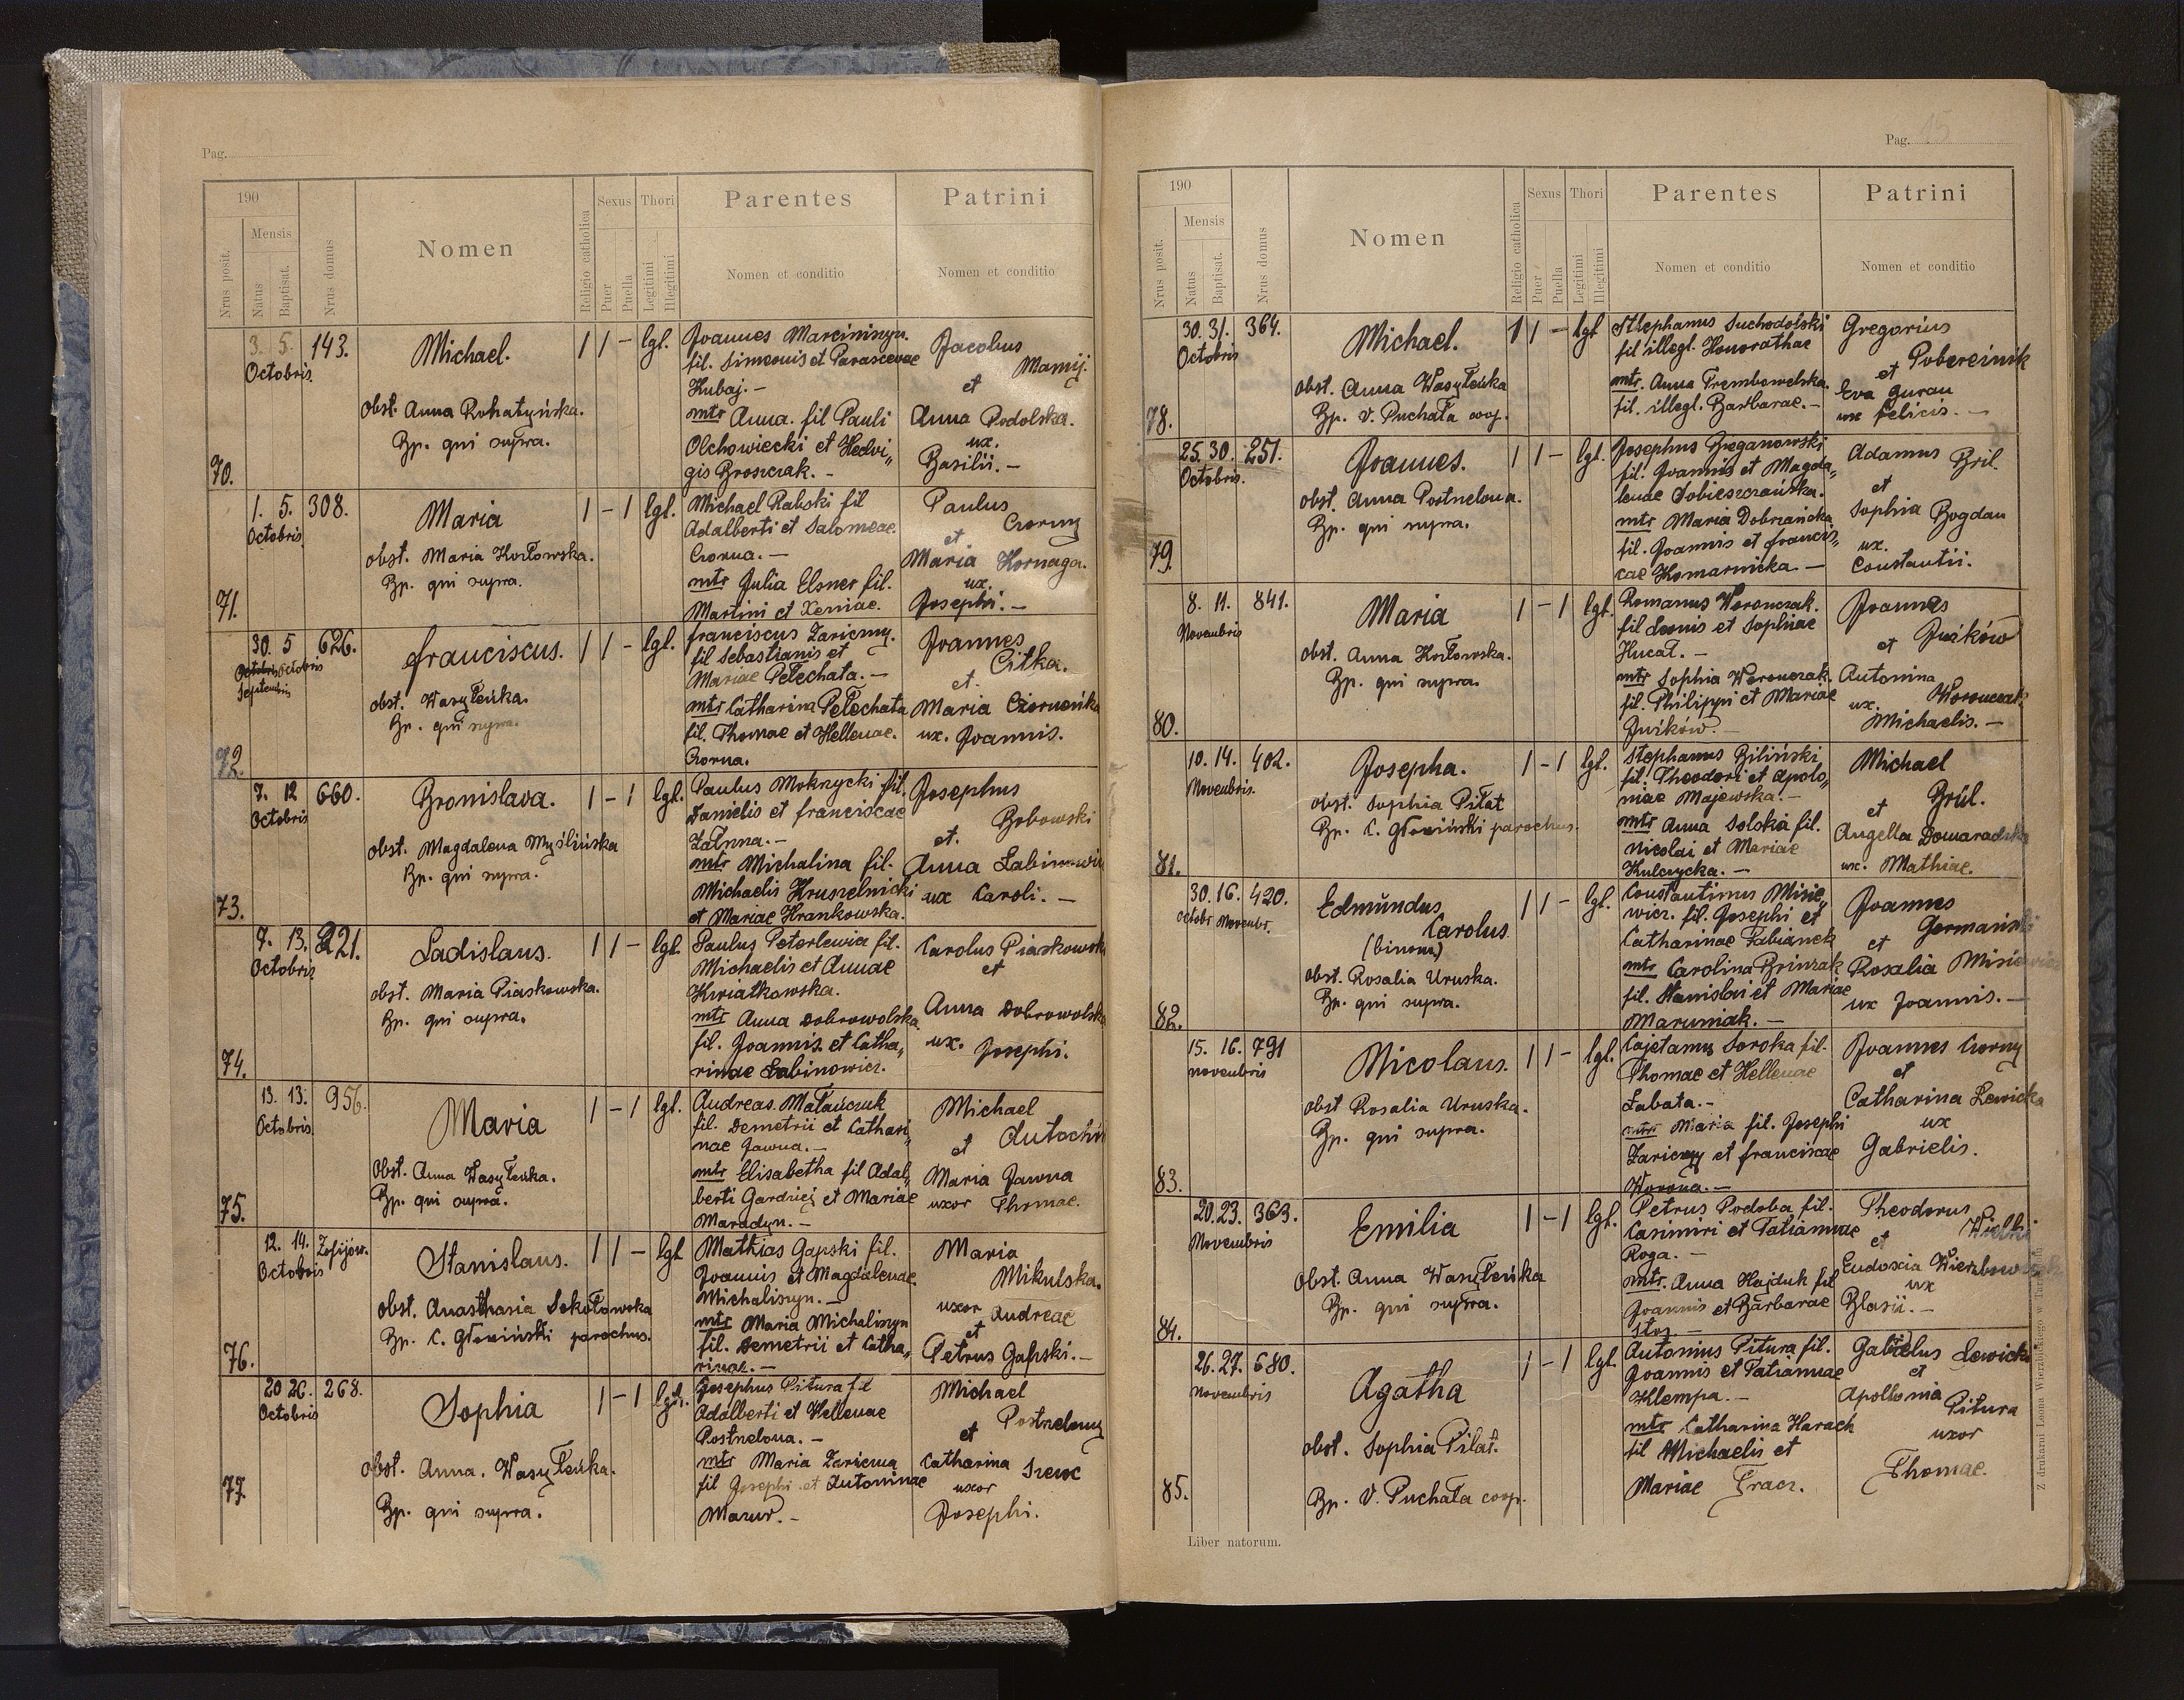 Pag.
190
Nrus posit.
Mensis
Natus
Baptisat.
Nrus domus
Nomen
Religio catholica
Sexus
Puer
Puella
Thori
Legitimi
Illegitimi
Parentes
Nomen et conditio
Patrini
Nomen et conditio
70.
3. 5.
Octobris
143.
Michael.
obst. Anna Rohatyńska.
Bp. qui supra.
1 1 - lgl.
Joannes Marciniszyn.
fil. Simeonis et Parascevae
Kubaj. -
mtr Anna. fil Pauli
Olchowiecki et Hedvi„
gis Broszczak. -
Jacobus
Mamij.
et
Anna Podolska.
ux.
Basilii. -
71.
1. 5.
Octobris
308.
Maria
obst. Maria Kozłowska.
Bp. qui supra.
1 - 1 lgl.
Michael Rabski fil
Adalberti et Salomeae
Czorna. -
mtr Julia Elsner fil.
Martini et Xeniae.
Paulus
Czorny
et
Maria Kornaga.
ux.
Josephi. -
72.
30. 5
Octobris Octobris
Septembris
626.
Franciscus.
obst. Wasyłeńka.
Bp. qui supra.
1 1 - lgl.
Franciscus Zariczny.
fil Sebastianis et
Mariae Pełechata. -
mtr Catharina Pełechata
fil. Thomae et Hellenae.
Czorna.
Joannes
Citka.
et.
Maria Cziorneńka
ux. Joannis.
73.
7. 12
Octobris
660.
Bronislava.
obst. Magdalena Myślińska
Bp. qui supra.
1 - 1 lgl.
Paulus Mokrzycki fil.
Danielis et Franciscae
Załnna. -
mtr Michalina fil.
Michaelis Hruszelnicki
et Mariae Hrankowska.
Josephus
Bobowski
et.
Anna
ux Caroli. -
74.
7. 13.
Octobris
221.
Ladislaus.
obst. Maria Piaskowska.
Bp. qui supra.
1 1 - lgl.
Paulus Peterlewicz fil.
Michaelis et Annae
Kwiatkowska.
mtr Anna Dobrowolska
fil. Joannis et Catha„
rinae Babinowicz.
Carolus Piaskowski
et
Anna Dobrowolska
ux. Josephi.
75.
13. 13.
Octobris
956.
Maria
Obst. Anna Wasyłeńka.
Bp. qui supra.
1 - 1 lgl.
Andreas. Matańczuk
fil. Demetrii et Cathari„
nae Jawna. -
mtr Elisabetha fil Adal„
berti Gardziej et Mariae
Maradyn. -
Michael
et
Maria Jawna
uxor Thomae.
76.
12. 14.
Octobris
Zofijów.
Stanislaus.
obst. Anasthasia Sokołowska
Bp. C. Głowiński parochus.
1 1 - lgl
Mathias Gapski fil.
Joannis et Magdalenae
Michaliszyn. -
mtr Maria Michaliszyn
fil. Demetrii et Catha„
rinae. -
Maria
Mikulska.
uxor Andreae
et
Petrus Gapski. -
77.
20 26.
Octobris
268.
Sophia
obst. Anna. Wasyłeńka.
Bp. qui supra.
1 - 1 lgl.
Josephus Pitura fil
Adalberti et Hellenae
Postrelona. -
mtr Maria Zariczna
fil Josephi et Antoninae
Mazur. -
Michael
Postrelony
et
Catharina Szewc
uxor
Josephi.
Pag. 15
190
Nrus posit.
Mensis
Natus
Baptisat.
Nrus domus
Nomen
Religio catholica
Sexus
Puer
Puella
Thori
Legitimi
Illegitimi
Parentes
Nomen et conditio
Patrini
Nomen et conditio
78.
30. 31.
Octobris
364.
Michael.
obst. Anna Wasyłeńka
Bp. V. Puchała coop.
1 1 - lgl
Sthephanus Suchodolski
fil illegl. Honorathae
mtr. Anna Trembowelska.
fil. illegl. Barbarae. -
Gregorius
et Pobereinik
Eva Guran
ux Felicis. -
79.
25. 30.
Octobris.
251.
Joannes.
obst. Anna Postrelona.
Bp. qui supra.
1 1 - lgl.
Josephus Breganowski
fil. Joannis et Magda„
lenae Sobieszczańska.
mtr Maria Dobrzańska
fil. Joannis et Francis„
cae Komarnicka. -
Adamus Bril.
et
Sophia Bogdan
ux.
Constantii.
80.
8. 11.
Novembris
841.
Maria
obst. Anna Kozłowska.
Bp. qui supra.
1 - 1 lgl.
Romanus Woronczak.
fil Leonis et Sophiae
Hucał. -
mtr Sophia Woronczak.
fil. Philippi et Mariae
Juśków. -
Joannes
et Juśków
Antonina
ux. Woronczak
Michaelis. -
81.
10. 14.
Novembris.
402.
Josepha.
obst. Sophia Piłat
Bp. C. Głowiński parochus.
1 - 1 lgl.
Stephanus Biliński
fil. Theodori et Apolo„
niae Majewska. -
mtr Anna Solska fil.
Nicolai et Mariae
Kulczycka. -
Michael
et Brül.
Angella Domaradzka
ux. Mathiae.
82.
30. 16.
Octobr. Novembr.
420.
Edmundus
Carolus
(binom)
obst. Rosalia Uruska.
Bp. qui supra.
1 1 - lgl.
Constantinus Misie„
wicz. fil. Josephi et
Catharinae Fabianek
mtr Carolina Brinzak
fil. Stanislai et Mariae
Maruniak. -
Joannes
Germański
et
Rosalia Misiewicz
ux Joannis. -
83.
15. 16.
Novembris
791
Nicolaus.
obst Rosalia Uruska.
Bp. qui supra.
1 1 - lgl.
Cajetanus Soroka fil.
Thomae et Hellenae
Łabata. -
mtr Maria fil. Josephi
Zariczny et Franciscae
Worona. -
Joannes Czorny
et
Catharina Lewicka
ux
Gabrielis.
84.
20. 23.
Novembris
363.
Emilia
Obst. Anna Wasyłeńka
Bp. qui supra.
1 - 1 lgl.
Petrus Podoba fil.
Casimiri et Tatiannae
Roga. -
mtr. Anna Hajduk fil
Joannis et Barbarae
Stoz. -
Theodorus
et
Eudoxia
ux
Blasii. -
85.
26. 27.
Novembris
680.
Agatha
obst. Sophia Piłat.
Bp. V. Puchała coop.
1 - 1 lgl.
Antonius Pitura fil.
Joannis et Tatiannae
Klempa. -
mtr Catharina Harach
fil Michaelis et
Mariae Tracz.
Gabrielus Lewicki
et
Apollonia Pitura
uxor
Thomae.
Liber natorum.
Z drukarni Leona Wierzbickiego w Tarnopolu